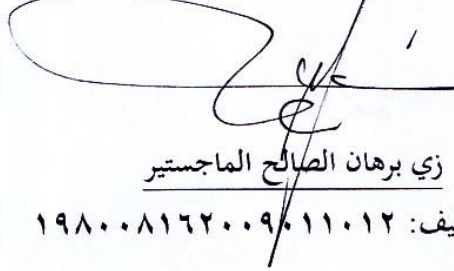 زي برهان الصالح الماجستير
يف: ١٩٨٠٠٨١٦٢٠٠٩٠١١٠١٢